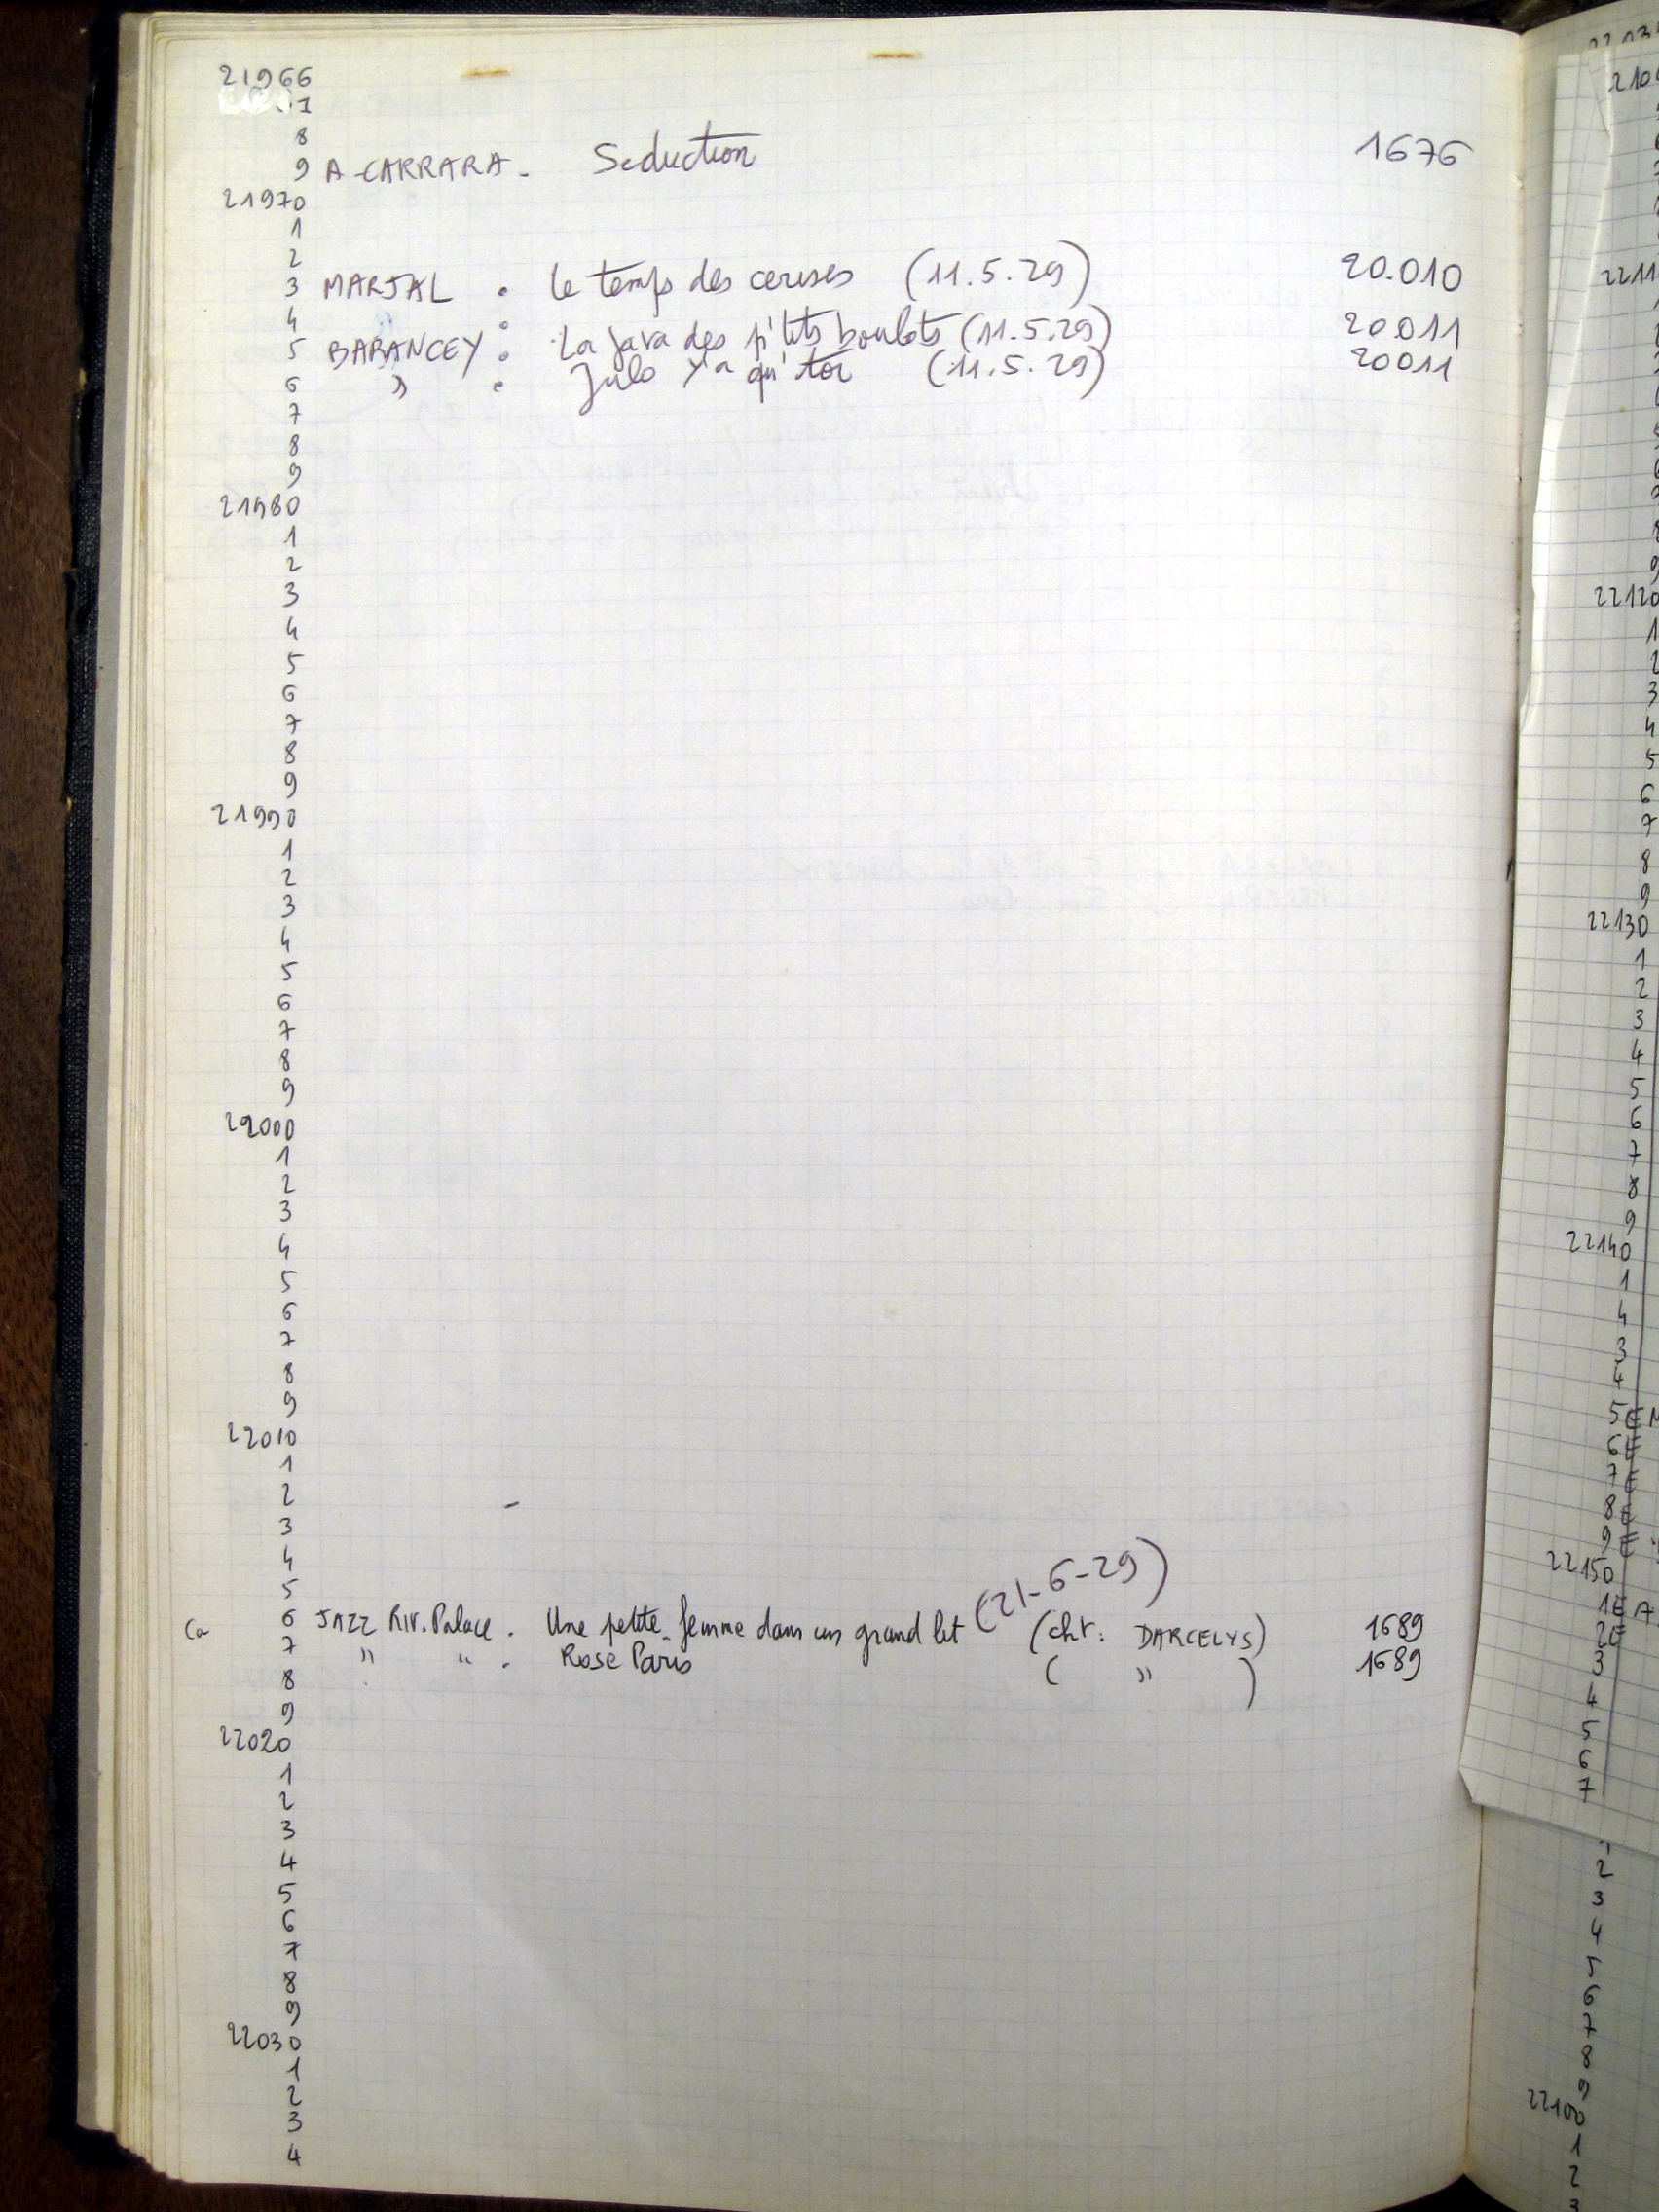 21966
7
8
9 A-CARRARA - Seduction 1676
21970
1
2
3 MARJAL . le temps des cerises (11.5.29) 20.010
4 " .
5 BARANCEY . La java des p'tits boulots (11.5.29) 20011
6 " . Julo y'a qu'toi (11.5.29) 20011
7
8
9
21980
1
2
3
4
5
6
7
8
9
21990
1
2
3
4
5
6
7
8
9
22000
1
2
3
4
5
6
7
8
9
22010
1
2 -
3
4
5
Ca 6 JAZZ Riv. Palace . Une petite femme dans un grand lit (21-6-29) (cht: DARCELYS) 1689
7 " " . Rose Paris ( " ) 1689
8
9
22020
1
2
3
4
5
6
7
8
9
22030
1
2
3
4
2210
2211
9
22120
1
2
3
4
5
6
7
8
9
22130
1
2
3
4
5
6
7
8
9
22140
1
4
3
4
5E
6E
7E
8E
9E
22150
1E A
2E
3
4
5
6
7
2
3
4
5
6
7
8
9
22100
1
2
3